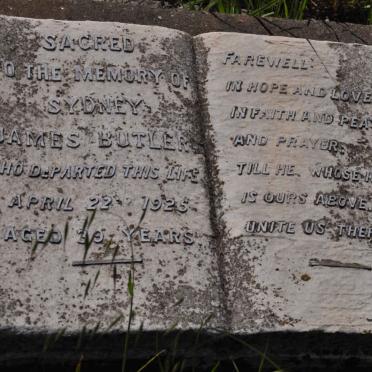 SACRED
TO THE MEMORY OF
SYDNEY
JAMES BUTLER
WHO DEPARTED THIS LIFE
APRIL 22ND 1925
AGED YEARS
FAREWELL:
IN HOPE AND LOVE
IN FAITH AND PEACE
AND PRAYER
TILL HE, WHOSE
IS OURS ABOVE
UNITE US THERE